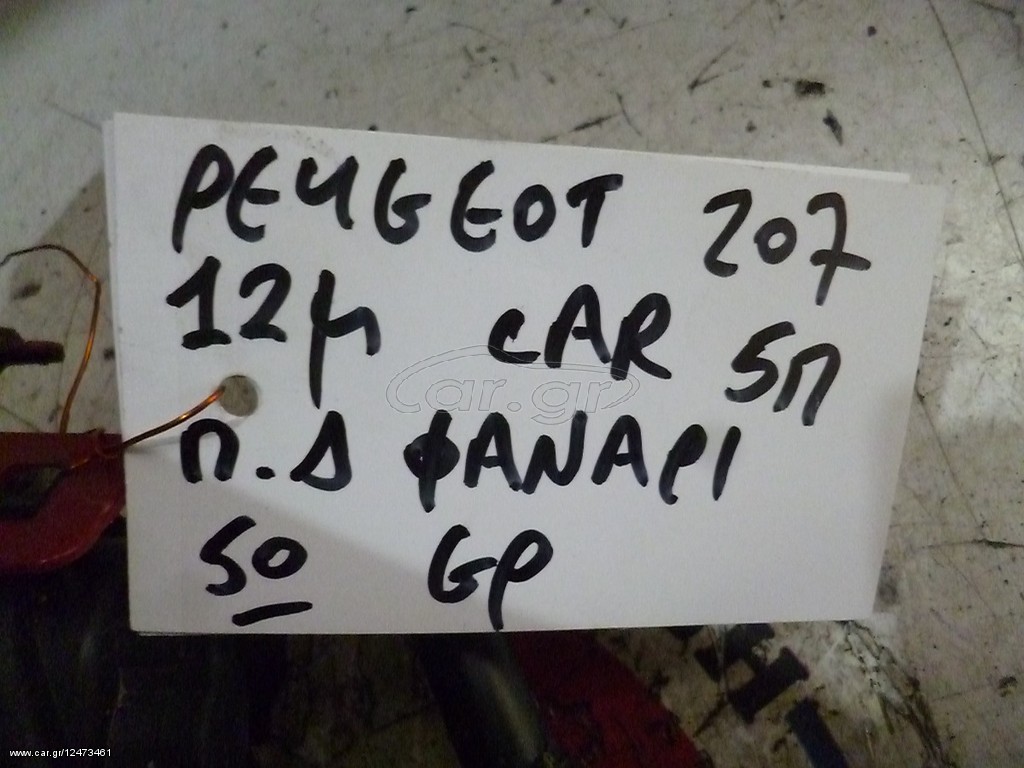 PEUGEOT 207
12μ CAR 5π
Π.Δ ΦΑΝΑΡΙ
50 GP
car.gr
www.car.gr/12473461